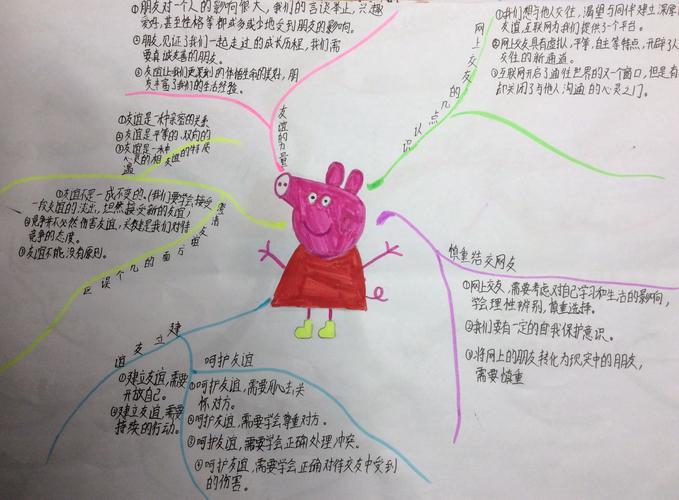 ①朋友对一个人的影响很大，我们的言谈举止，兴趣
爱好，甚至性格等都或多或少地受到朋友的影响。
②朋友，见证了我们一起走过的成长历程，我们需
要真诚友善的朋友。
③友谊让我们更深刻的体悟生命的美好，朋
友丰富了我们的生活经验。
友谊的力量
①友谊是一种亲密的关系
②友谊是平等的、双向的
③友谊是一种
心灵的相遇
友谊的特质
①友谊不是一成不变的。(我们要学会接受
一段友谊的淡出，坦然接受新的友谊，
②竞争并不必然伤害友谊，关键是我们对待
竞争的态度。
③友谊不能没有原则。
澄清友谊方面的几个误区
建立友谊
①建立友谊，需要
开放自己。
②建立友谊，需要
持续的行动。
呵护友谊
①呵护友谊，需要用心去关
怀对方。
②呵护友谊，需要学会尊重对方。
③呵护友谊，需要学会正确处理冲突。
④呵护友谊，需要学会正确对待交友中受到
的伤害。
网上交友的几点认识
①我们想与他人交往，渴望与同伴建立深厚
友谊，互联网为我们提供了一个平台。
②网上交友具有虚拟、平等、自主等特点，开辟了人
交往的新通道。
③互联网开启了通往世界的又一个窗口，但是有
却关闭了与他人沟通的心灵之门。
慎重结交网友
①网上交友，需要考虑对自己学习和生活的影响，
学会理性辨别，慎重选择。
②我们要有一定的自我保护意识。
③将网上的朋友转化为现实中的朋友，
需要慎重